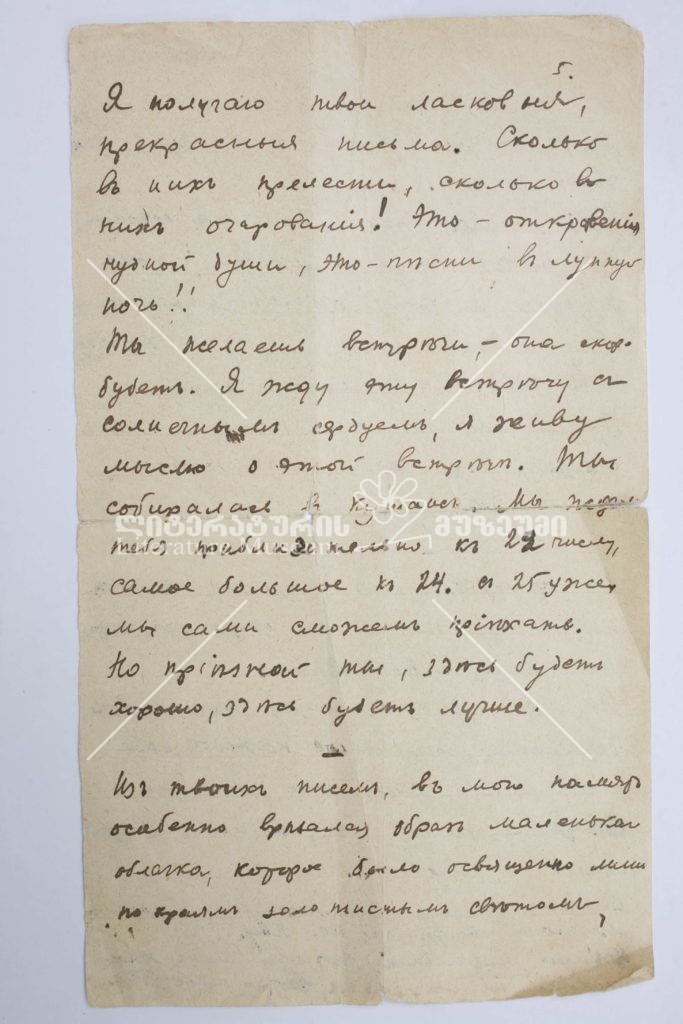 5.
Я получаю твои ласковыя,
прекрасныя письма. Сколько
въ нихъ прелести, сколько въ
нихъ очарованія! Это – откровенія
чудной души, это – пѣсни въ лунную
ночь!!
Ты желаешь встрѣчи, – она скоро
будетъ. Я жду эту встрѣчу съ
солнечнымъ сердцемъ, я живу
мыслю о этой встрѣчи. Ты
собиралась в Кутаисъ. Мы ждем
ლიტერატურის მუზეუმი
Literature Museum
тебя приблизительно къ 22 числу,
самое большое къ 24. а 25 уже
мы сами сможемъ пріѣхать.
Но пріѣзжай ты, здѣсь будетъ
хорошо, здѣсь будетъ лучше.
Изъ твоихъ писемъ, въ мою память
особенно врѣзался образъ маленькаго
облачка, которое было освященно лишь
по краямъ золотистымъ свѣтомъ,